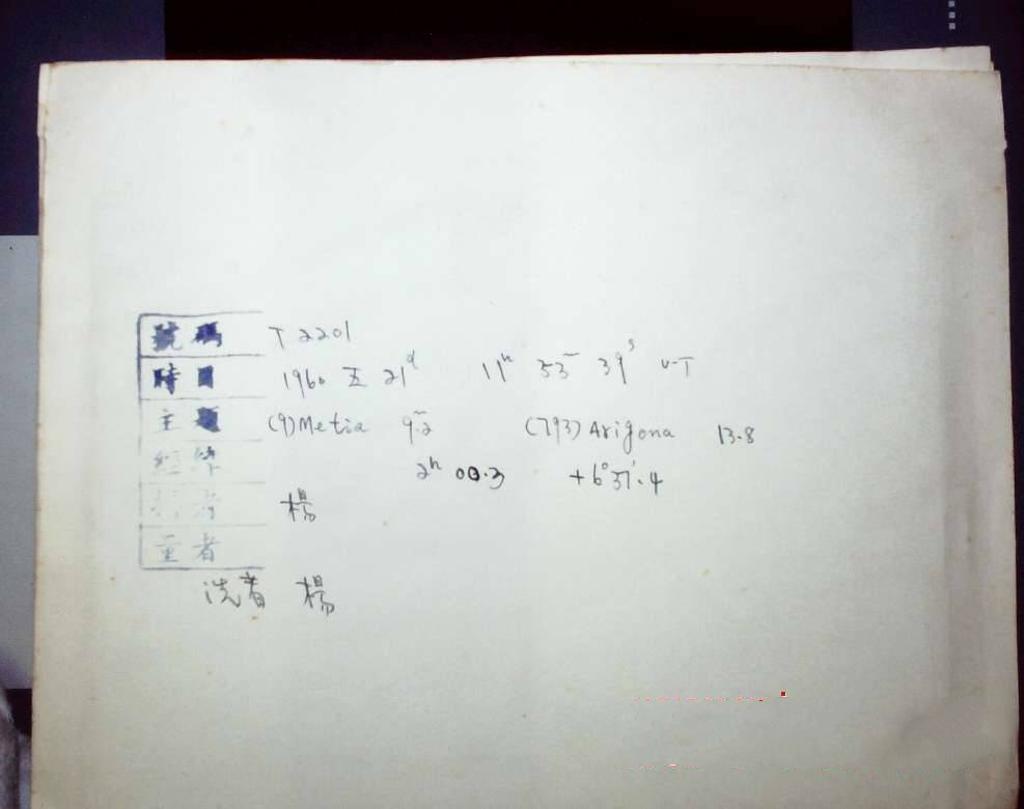 號碼 T 2201
時日 1960 五 21d 11h 53m 39s U-T
主題 (9) Metia 9.2 (793) Arigona 13.8
經緯 2h 00.3 +6°37'.4
楊
者
洗者 楊